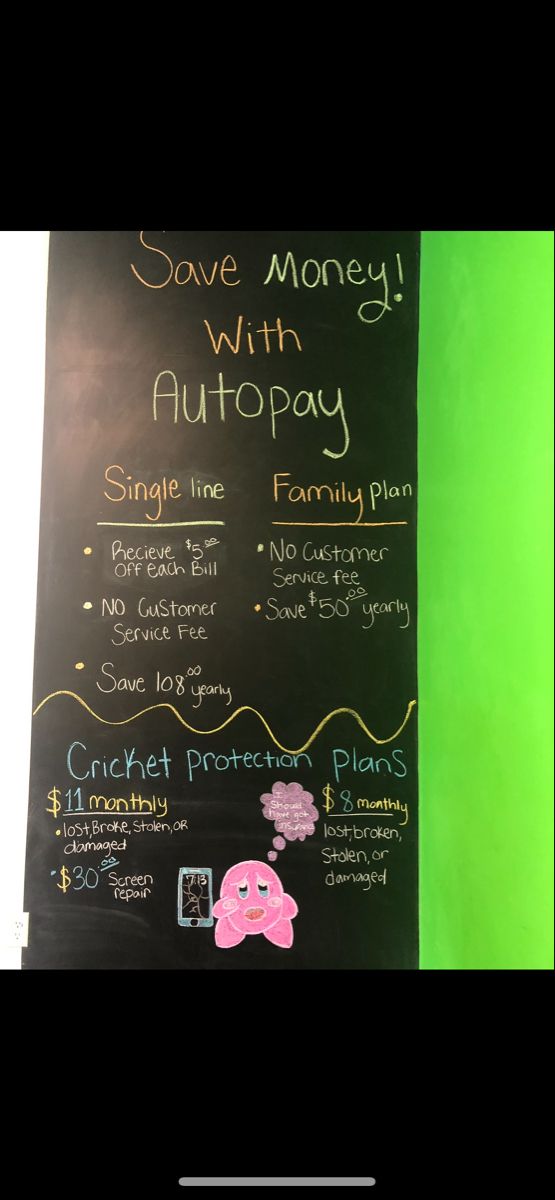 Save Money!
With
Autopay
Single line
• Recieve $5.00
Off Each Bill
• NO Customer
Service Fee
• Save 108.00 yearly
Family plan
• NO Customer
Service fee
• Save $50.00 yearly
Cricket protection plans
$11 monthly
• lost, Broke, Stolen, OR
damaged
• $30.00 Screen
repair
7:13
I
Should
have got
insurance
$8 monthly
lost, broken,
Stolen, or
damaged